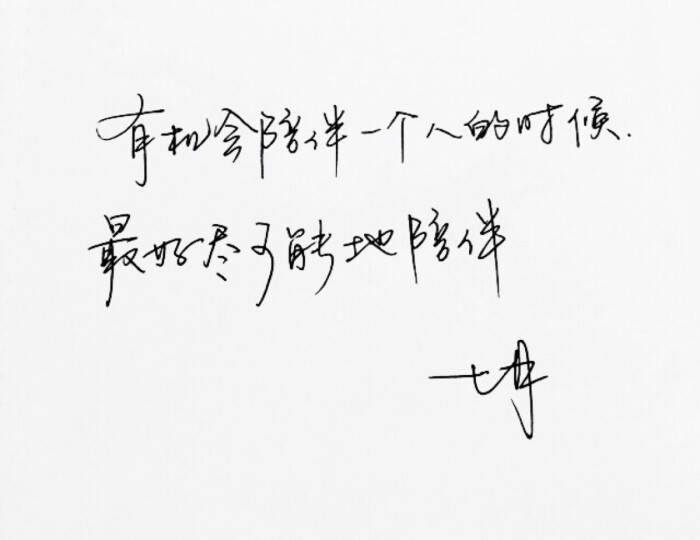 有机会陪伴一个人的时候.
最好尽可能地陪伴